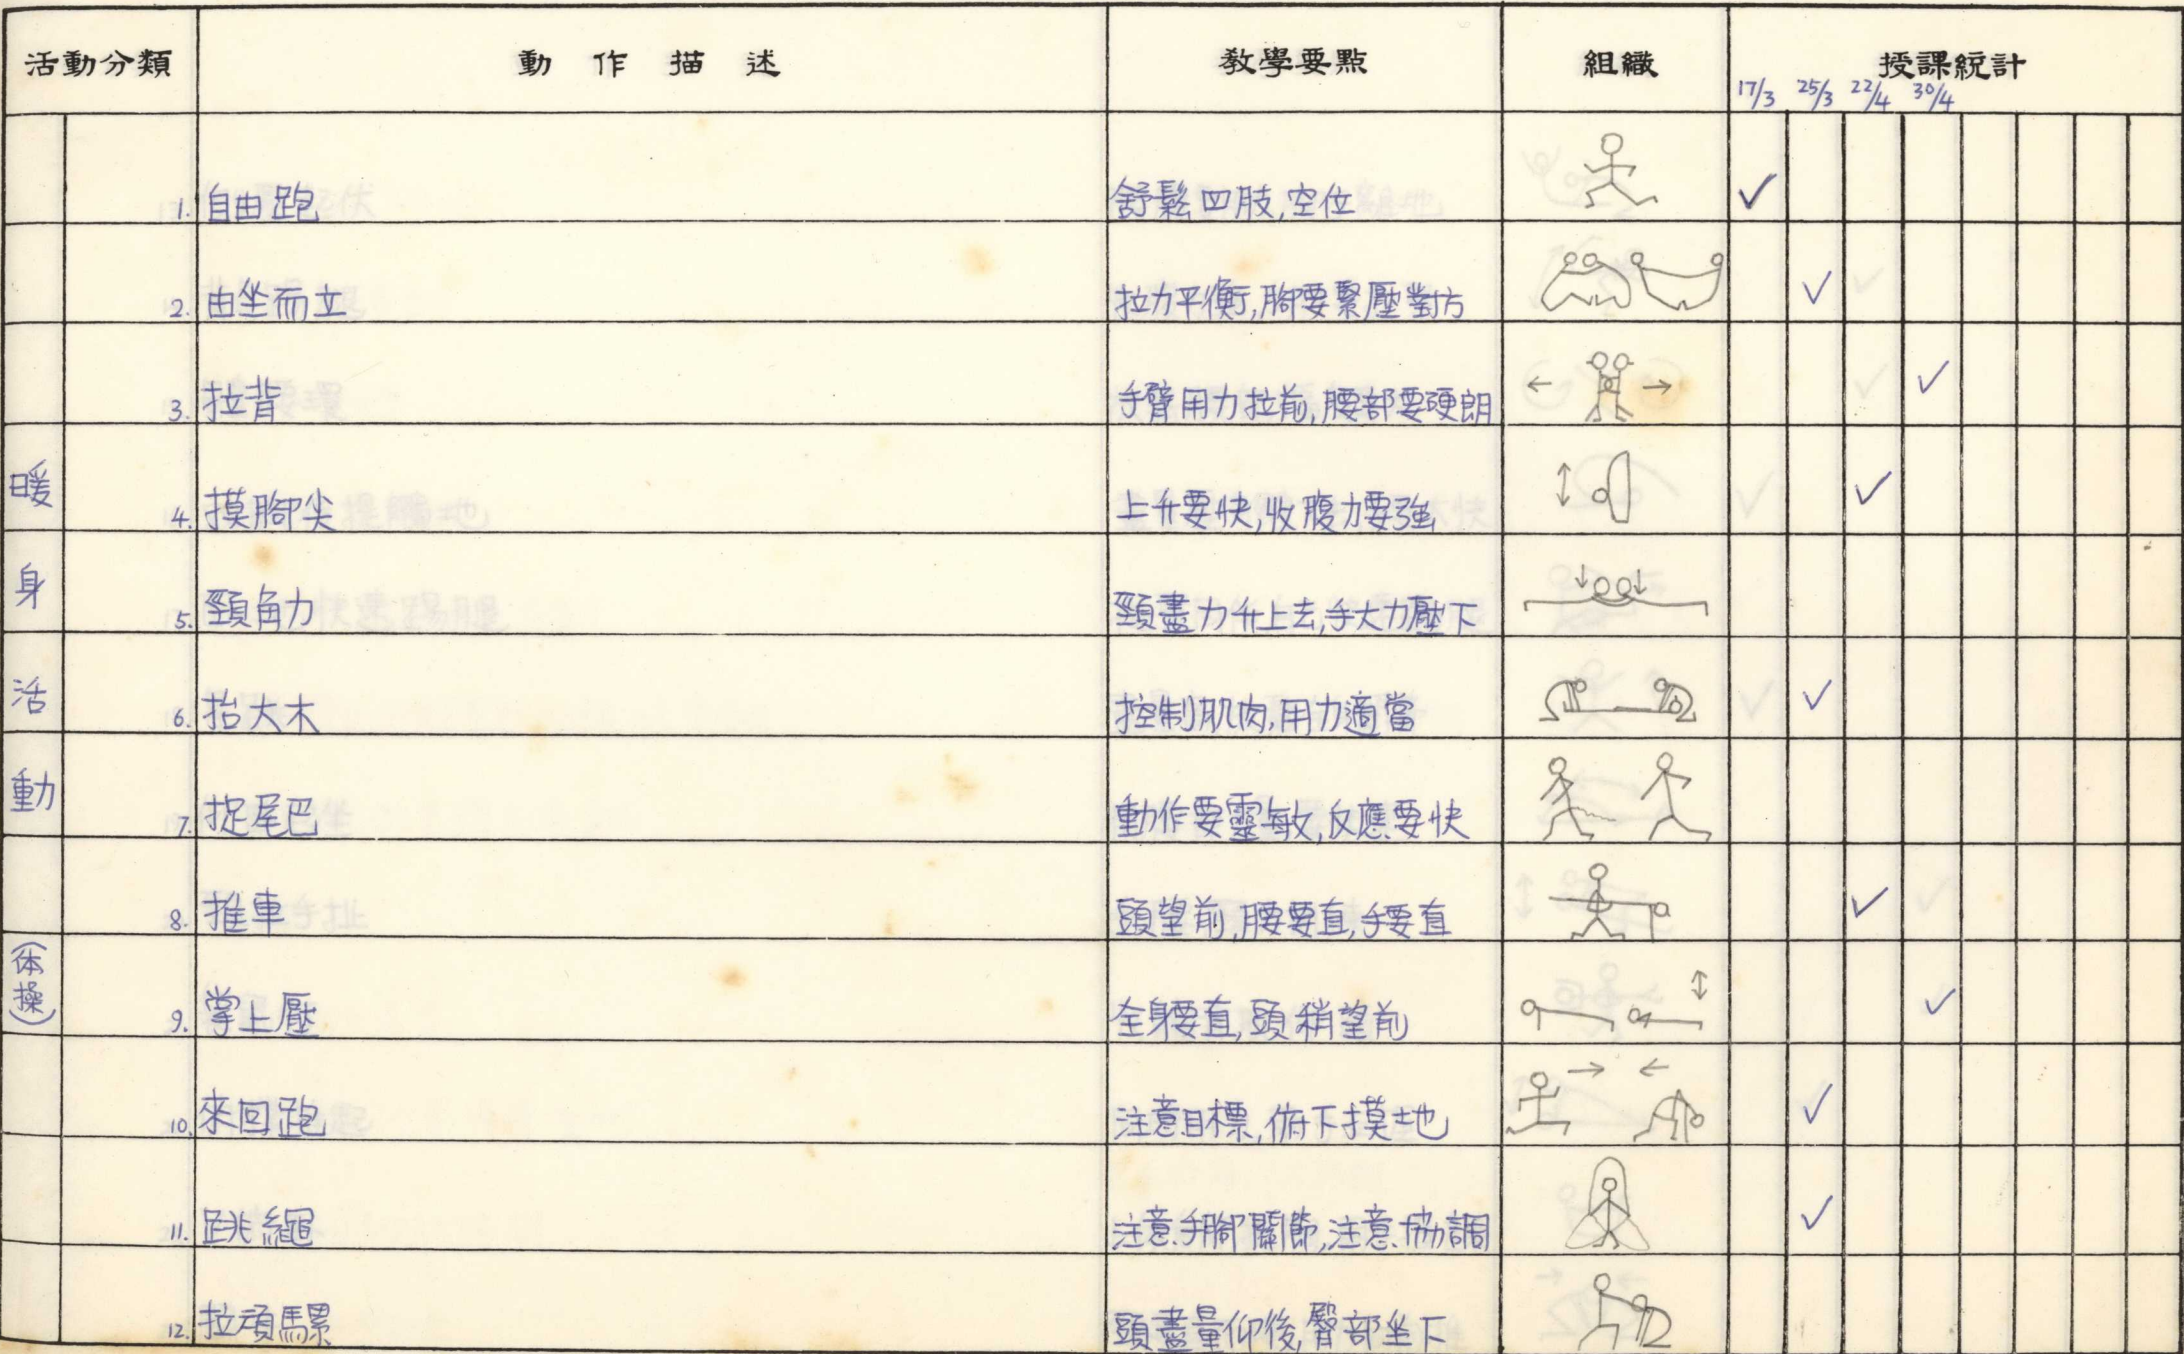 活動分類 動作描述 教學要點 組織 授課統計
17/3 25/3 22/4 30/4
暖身活動(体操)
1. 自由跑 舒鬆四肢,空位 ✓
2. 由坐而立 拉力平衡,腳要緊壓對方 ✓
3. 拉背 手臂用力拉前,腰部要硬朗 ✓
4. 摸腳尖 上升要快,收腹力要強 ✓
5. 頸角力 頸盡力升上去,手大力壓下
6. 抬大木 控制肌肉,用力適當 ✓
7. 捉尾巴 動作要靈敏,反應要快
8. 推車 頭望前,腰要直,手要直 ✓
9. 掌上壓 全身要直,頭稍望前 ✓
10. 來回跑 注意目標,俯下摸地 ✓
11. 跳繩 注意手腳關節,注意協調 ✓
12. 拉頑騾 頭盡量仰後,臀部坐下